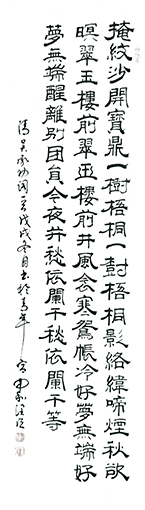 掩紋沙開寶鼎一樹梧桐一樹梧桐影絡緯啼煙秋欲
暝翠玉樓前翠玉樓前井風會寒鴛帳冷好夢無端好
夢無端醒離別團負今夜井愁依闌干愁依闌干等
清吳承勳詞 戊戌冬月書於